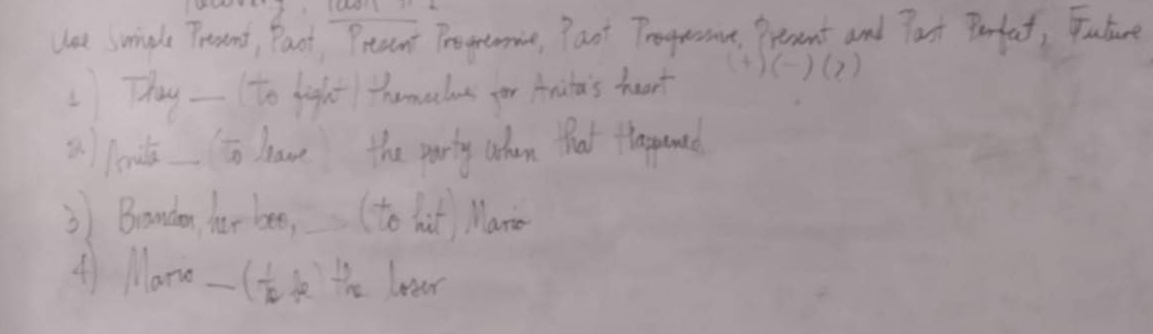 Recovery. Task n: 2
Use Simple Present, Past, Present Progressive, Past Progressive, Present and Past Perfect, Future
(+) (-) (?)
1) They __ (to fight) themselves for Anita's heart
2) Anita __ (to leave) the party when that Happened
3) Brandon, her boo, __ (to hit) Mario
4) Mario __ (to be) the loser